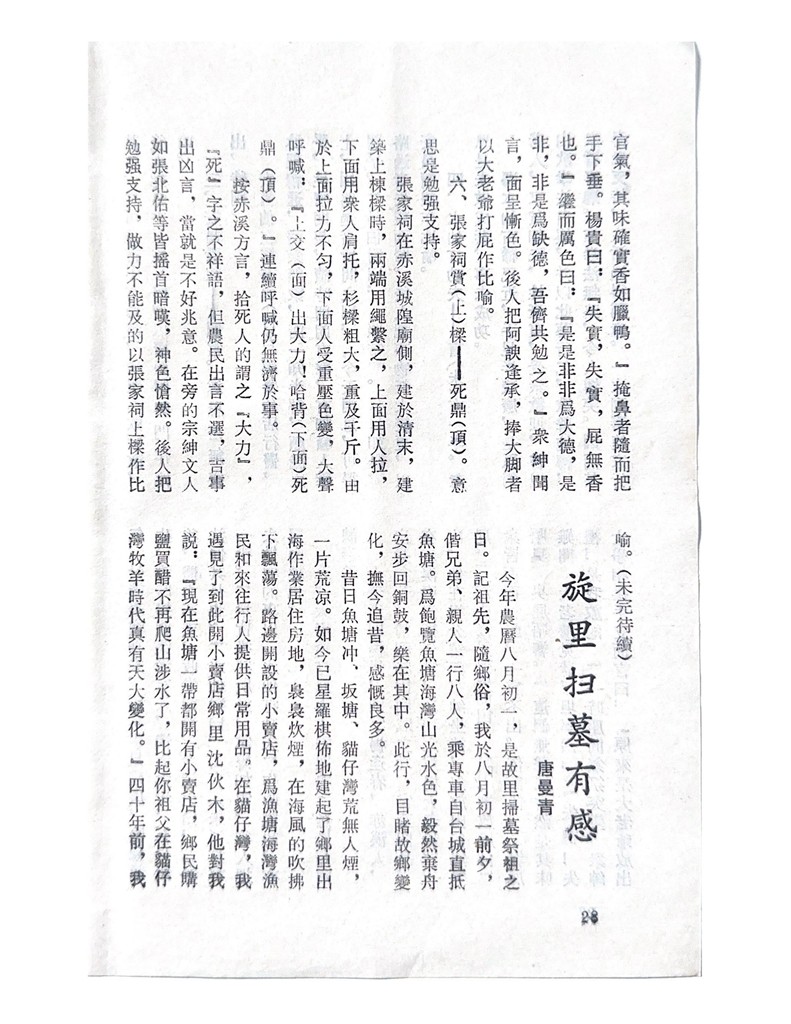 官氣，其味確實香如臘鴨。』掩鼻者隨而把
手下垂。楊貴曰：『失實，失實，屁無香
也。』繼而厲色曰：『是是非非爲大德，是
非，非是爲缺德，吾儕共勉之。』衆紳聞
言，面呈慚色。後人把阿諛逢承，捧大脚者
以大老爺打屁作比喻。
六、張家祠賞（上）樑——死鼎（頂）。意
思是勉强支持。
張家祠在赤溪城隍廟側，建於清末，建
築上棟樑時，兩端用繩繫之，上面用人拉，
下面用衆人肩托，杉樑粗大，重及千斤。由
於上面拉力不匀，下面人受重壓色變，大聲
呼喊：『上交（面）出大力！哈背（下面）死
鼎（頂）。』連續呼喊仍無濟於事。
按赤溪方言，拾死人的謂之『大力』，
『死』字之不祥語，但農民出言不選，吉事
出凶言，當就是不好兆意。在旁的宗紳文人
如張北佑等皆摇首暗嘆，神色愴然。後人把
勉强支持，做力不能及的以張家祠上樑作比
喻。（未完待續）
旋里扫墓有感
唐曼青
今年農曆八月初一，是故里掃墓祭祖之
日。記祖先，隨鄉俗，我於八月初一前夕，
偕兄弟、親人一行八人，乘專車自台城直抵
魚塘。爲飽覽魚塘海灣山光水色，毅然棄舟
安步回銅鼓，樂在其中。此行，目睹故鄉變
化，撫今追昔，感慨良多。
昔日魚塘冲、坂塘、貓仔灣荒無人煙，
一片荒凉。如今已星羅棋佈地建起了鄉里出
海作業居住房地，裊裊炊煙，在海風的吹拂
下飄蕩。路邊開設的小賣店，爲漁塘海灣漁
民和來往行人提供日常用品。在貓仔灣，我
遇見了到此開小賣店鄉里沈伙木，他對我
説：『現在魚塘一帶都開有小賣店，鄉民購
鹽買醋不再爬山涉水了，比起你祖父在貓仔
灣牧羊時代真有天大變化。』四十年前，我
28